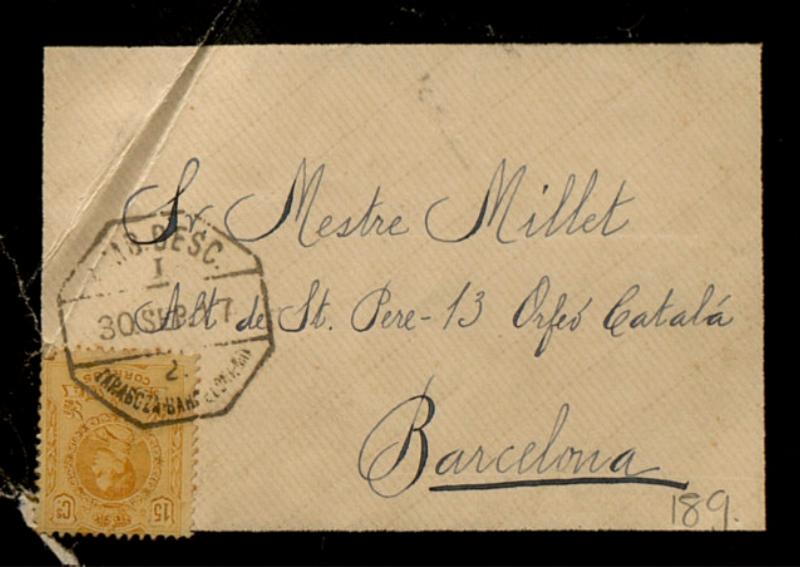 Sr. Mestre Millet
Alt de St. Pere-13 Orfeó Català
Barcelona
189.
DESC.
I
30 SEP 7
2
ZARAGOZA-BARCELONA
CORREOS
15 Cs